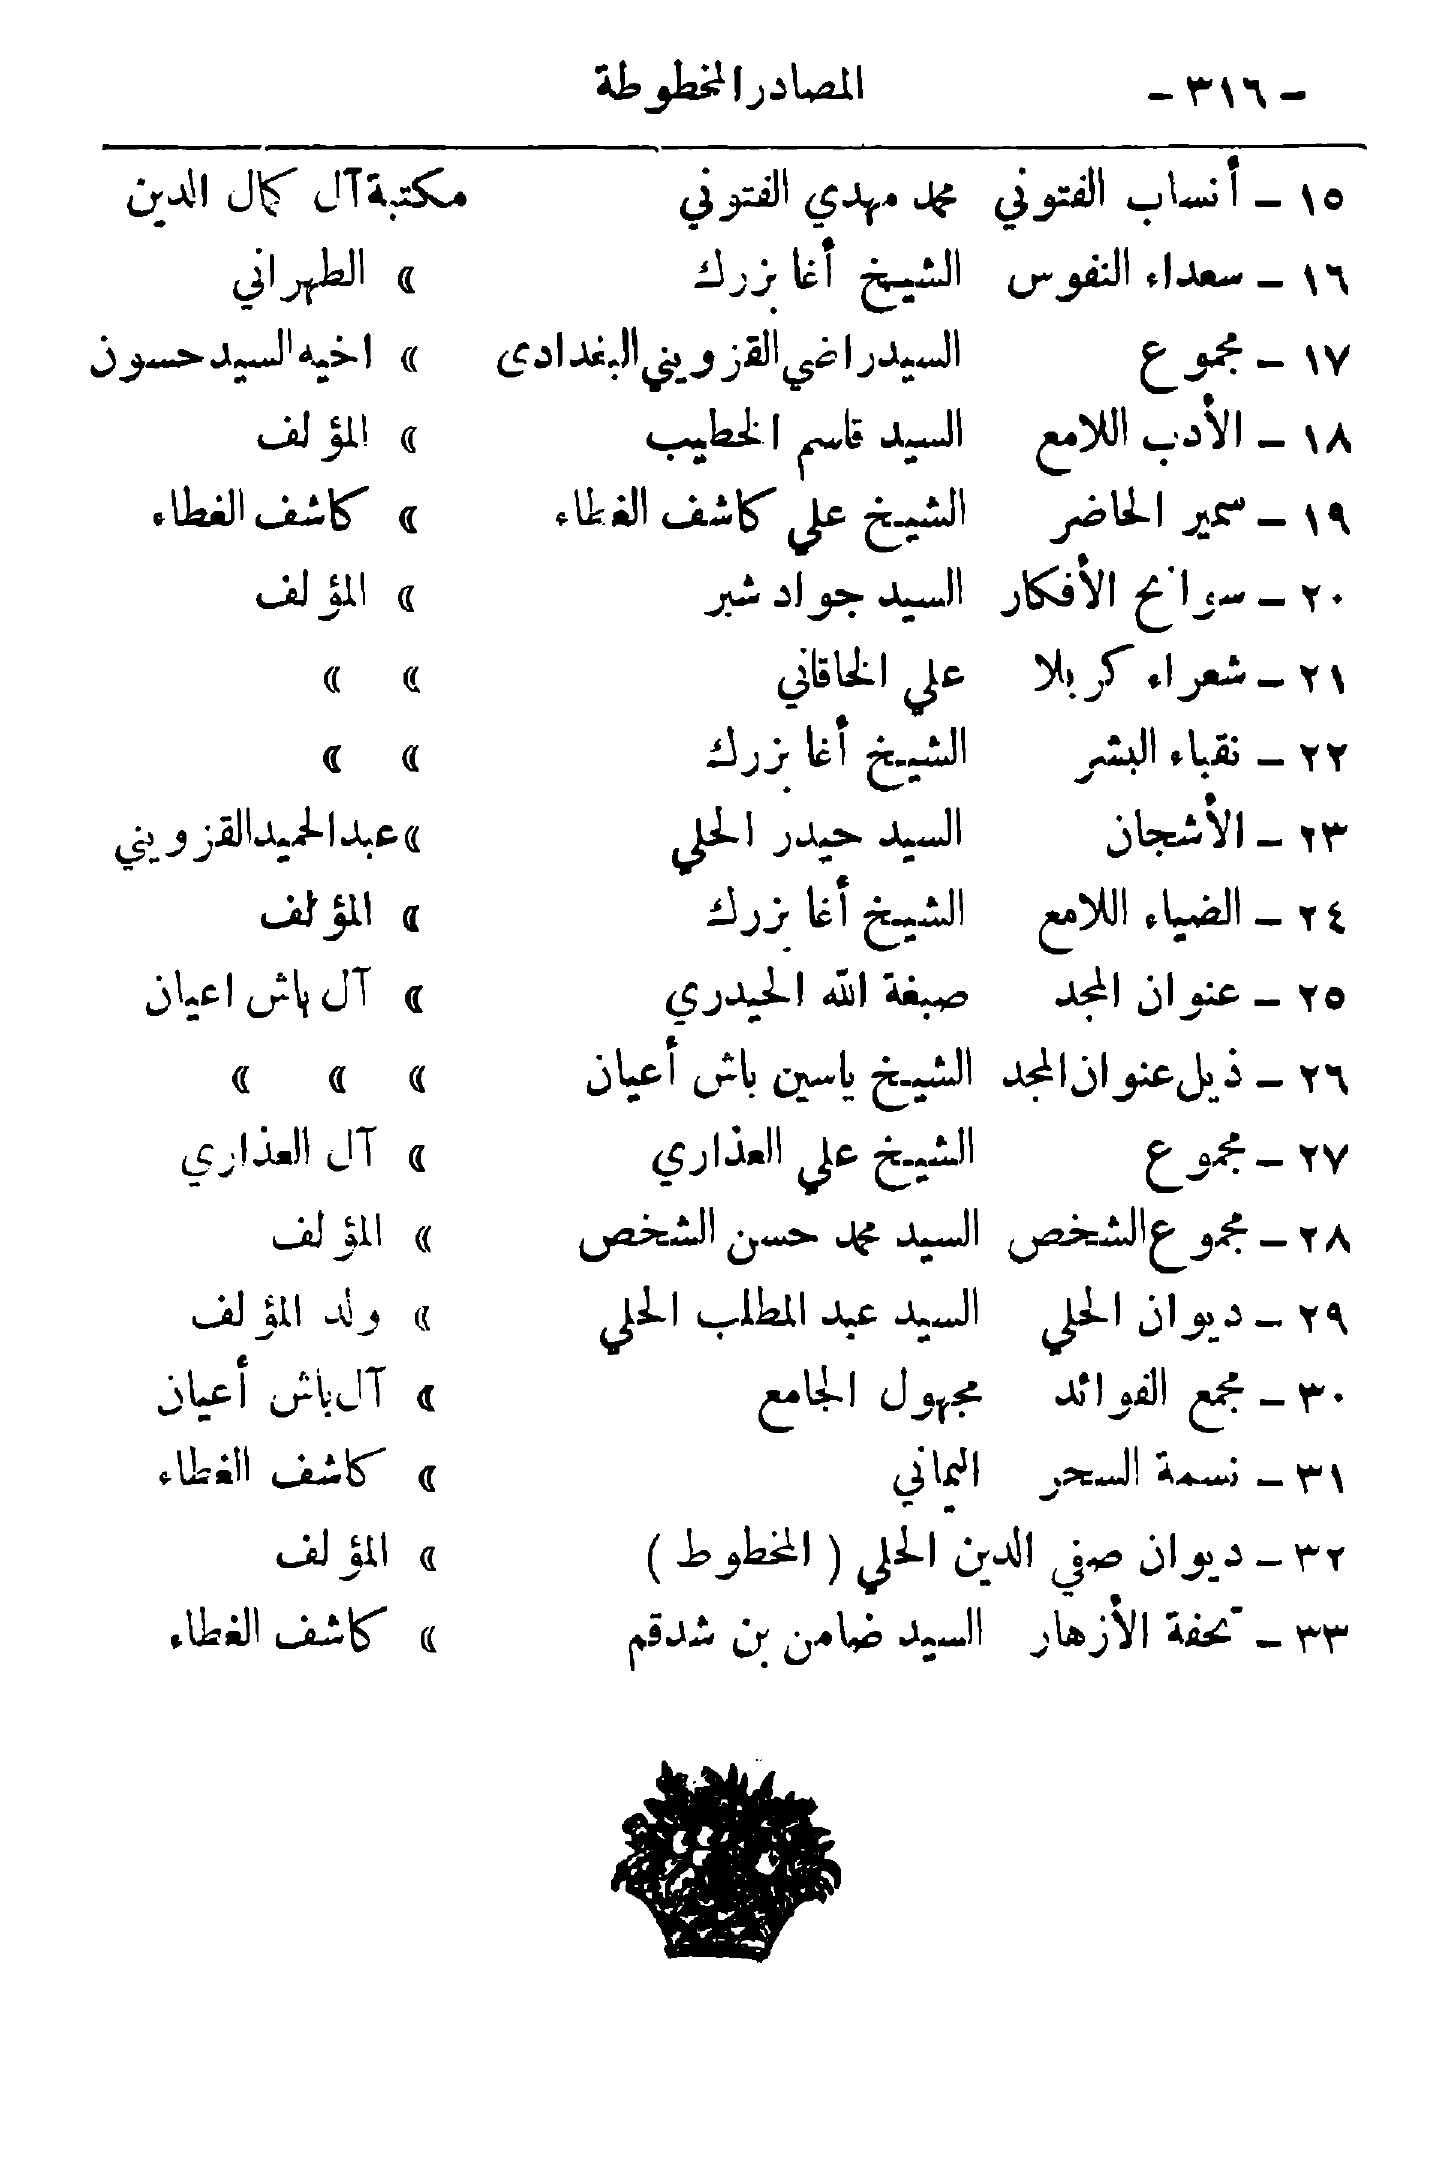 - ٣١٦ - المصادر المخطوطة
١٥ - أنساب الفتوني محمد مهدي الفتوني مكتبة آل كمال الدين
١٦ - سعداء النفوس الشيخ أغا بزرك » الطهراني
١٧ - مجموع السيد راضي القزويني البغدادى » اخيه السيد حسون
١٨ - الأدب اللامع السيد قاسم الخطيب » المؤلف
١٩ - سمير الحاضر الشيخ علي كاشف الغطاء » كاشف الغطاء
٢٠ - سوانح الأفكار السيد جواد شبر » المؤلف
٢١ - شعراء كربلا علي الخاقاني » »
٢٢ - نقباء البشر الشيخ أغا بزرك » »
٢٣ - الأشجان السيد حيدر الحلي » عبد الحميد القزويني
٢٤ - الضياء اللامع الشيخ أغا بزرك » المؤلف
٢٥ - عنوان المجد صبغة الله الحيدري » آل باش اعيان
٢٦ - ذيل عنوان المجد الشيخ ياسين باش أعيان » » »
٢٧ - مجموع الشيخ علي العذاري » آل العذاري
٢٨ - مجموع الشخص السيد محمد حسن الشخص » المؤلف
٢٩ - ديوان الحلي السيد عبد المطلب الحلي » ولد المؤلف
٣٠ - مجمع الفوائد مجهول الجامع » آل باش أعيان
٣١ - نسمة السحر اليماني » كاشف الغطاء
٣٢ - ديوان صفي الدين الحلي ( المخطوط ) » المؤلف
٣٣ - تحفة الأزهار السيد ضامن بن شدقم » كاشف الغطاء